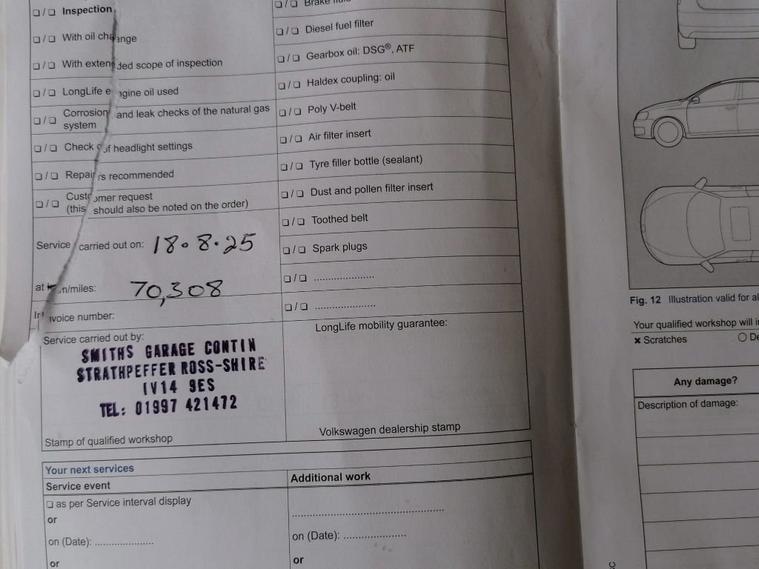 ☐ / ☐ Inspection
☐ / ☐ With oil change
☐ / ☐ With extended scope of inspection
☐ / ☐ LongLife engine oil used
☐ / ☐ Corrosion and leak checks of the natural gas
system
☐ / ☐ Check of headlight settings
☐ / ☐ Repairs recommended
☐ / ☐ Customer request
(this should also be noted on the order)
Service carried out on: 18.8.25
at km/miles: 70,308
Invoice number:
Service carried out by:
SMITHS GARAGE CONTIN
STRATHPEFFER ROSS-SHIRE
IV14 9ES
TEL: 01997 421472
Stamp of qualified workshop
☐ / ☐ Brake fluid
☐ / ☐ Diesel fuel filter
☐ / ☐ Gearbox oil: DSG®, ATF
☐ / ☐ Haldex coupling: oil
☐ / ☐ Poly V-belt
☐ / ☐ Air filter insert
☐ / ☐ Tyre filler bottle (sealant)
☐ / ☐ Dust and pollen filter insert
☐ / ☐ Toothed belt
☐ / ☐ Spark plugs
☐ / ☐ ....................
☐ / ☐ ....................
LongLife mobility guarantee:
Volkswagen dealership stamp
Your next services
Service event
☐ as per Service interval display
or
on (Date): ....................
or
Additional work
..................................................
on (Date): ....................
or
Fig. 12 Illustration valid for
Your qualified workshop will
✖ Scratches
Any damage?
Description of damage: